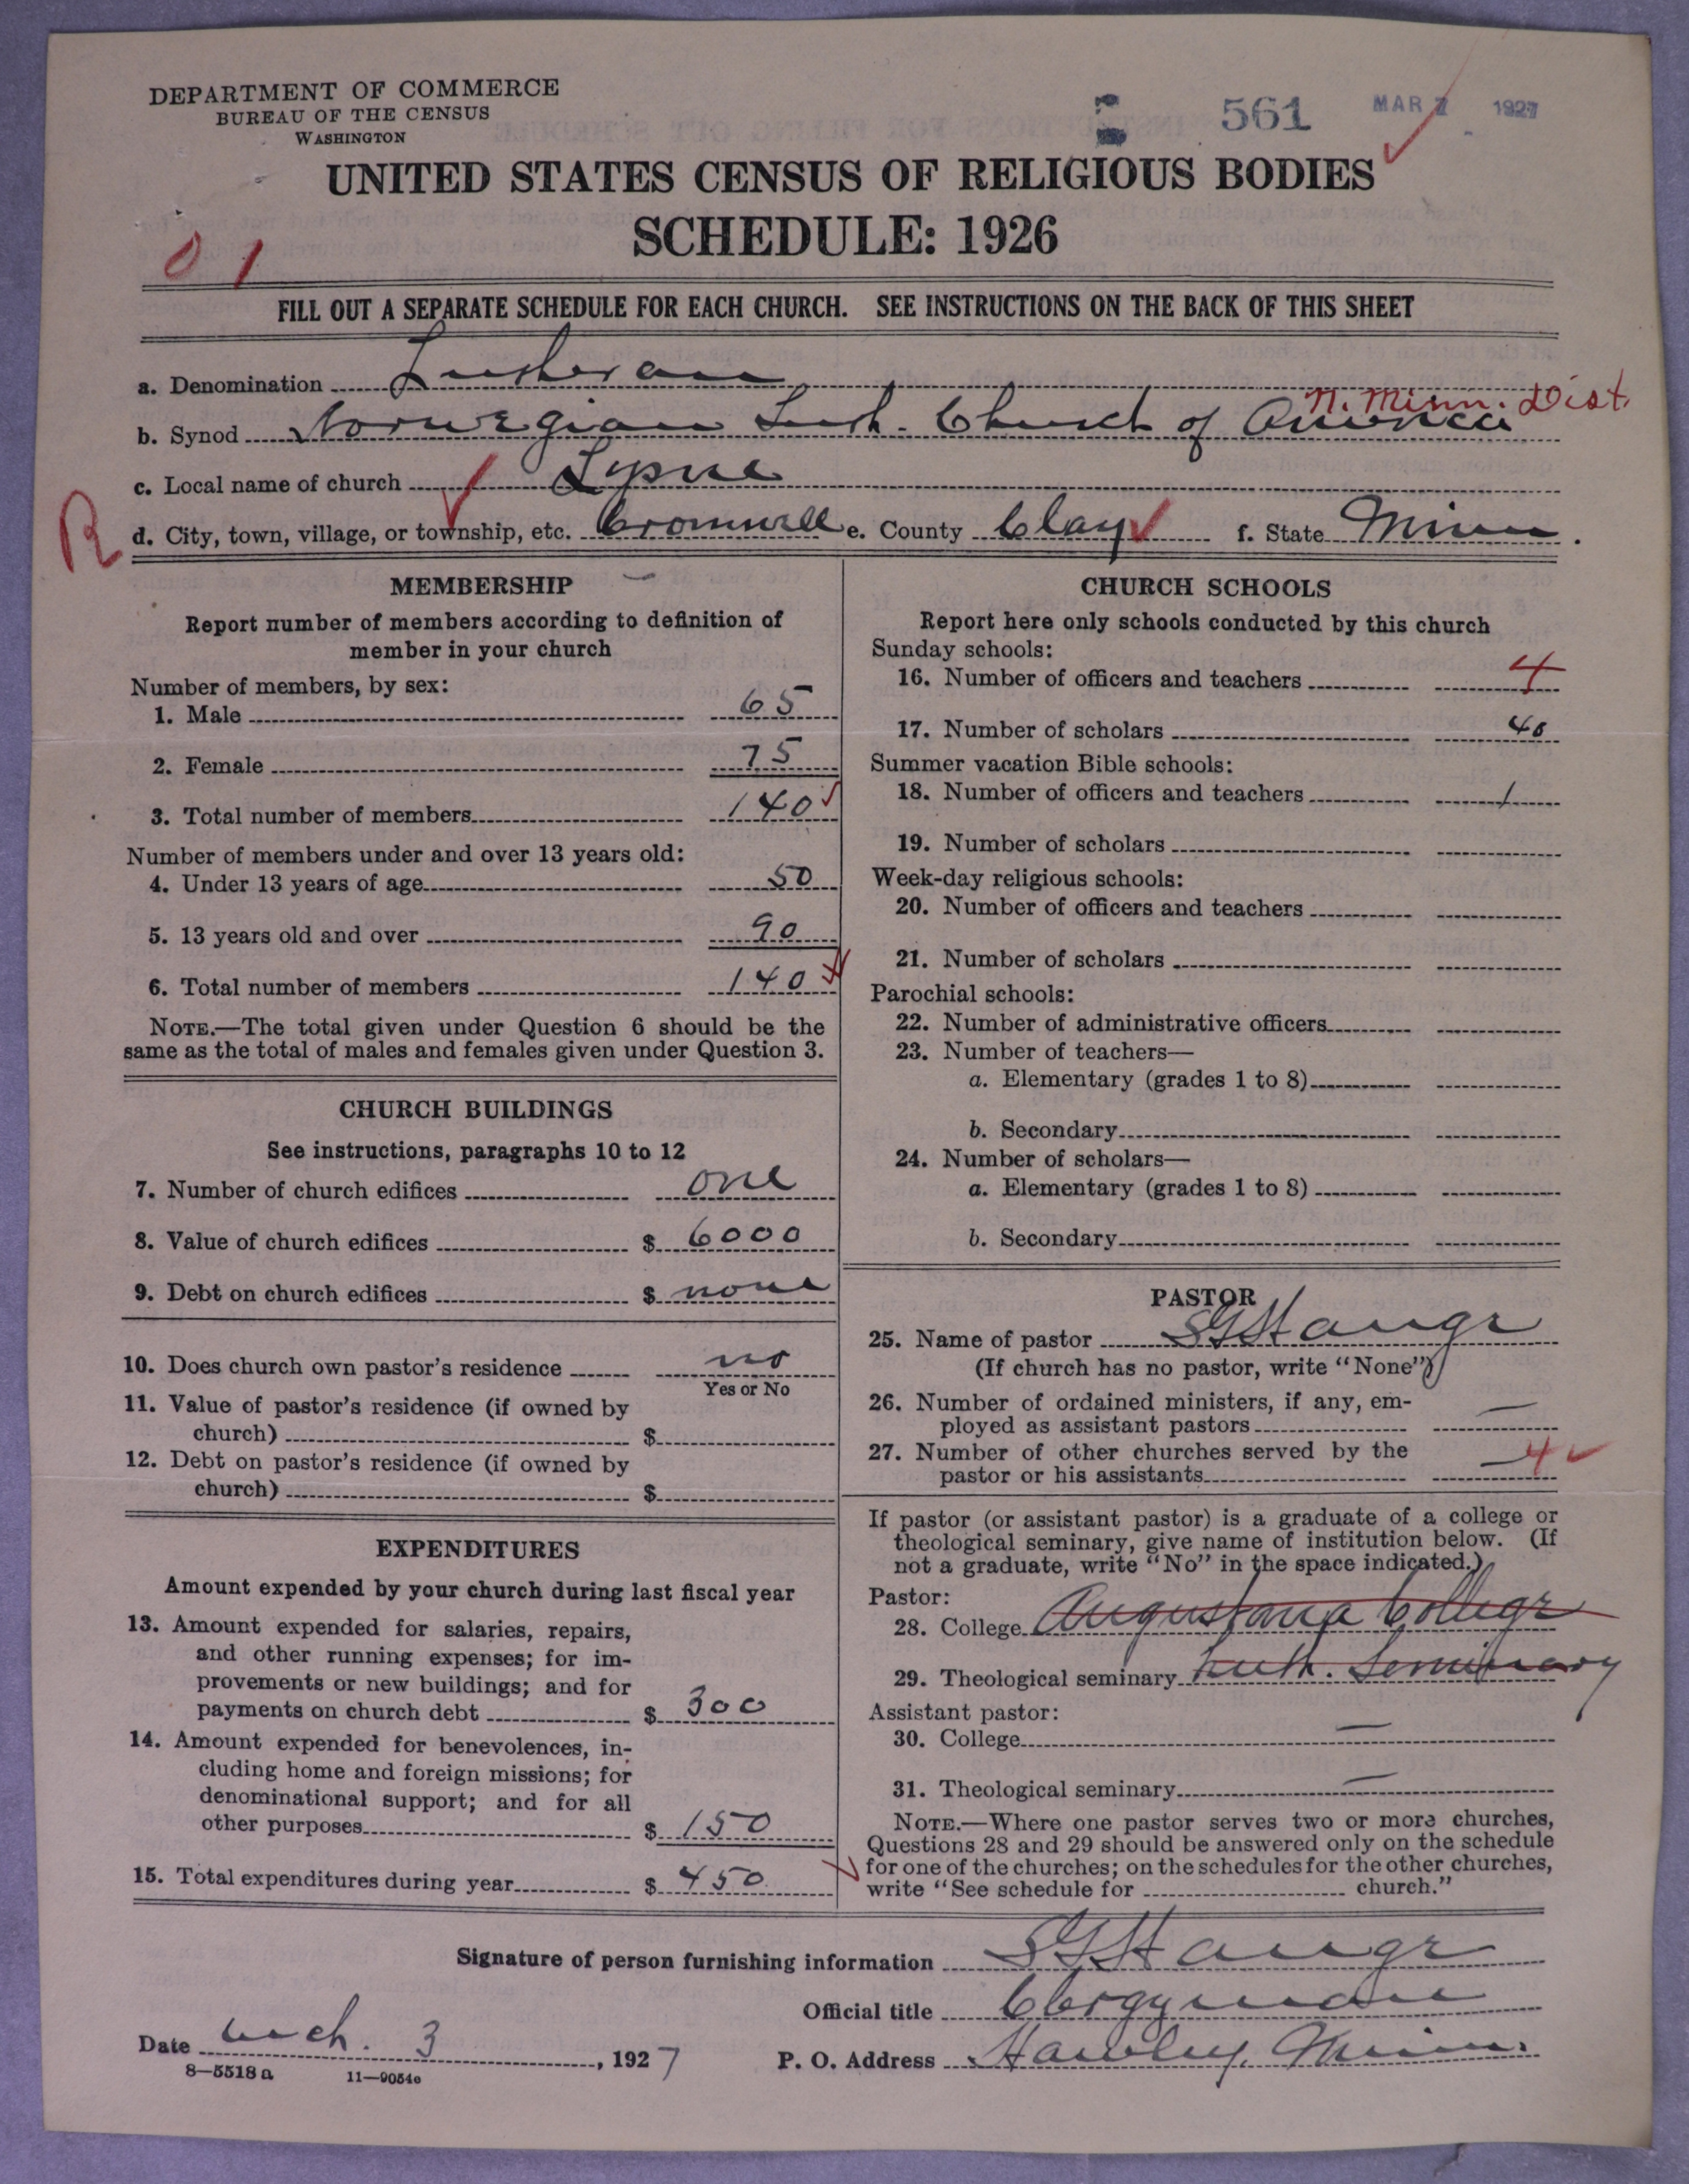 DEPARTMENT OF COMMERCE
BUREAU OF THE CENSUS
WASHINGTON
561 MAR 7 1927
UNITED STATES CENSUS OF RELIGIOUS BODIES
SCHEDULE: 1926
0 1
FILL OUT A SEPARATE SCHEDULE FOR EACH CHURCH. SEE INSTRUCTIONS ON THE BACK OF THIS SHEET
a. Denomination Lutheran
N. Minn. Dist.
b. Synod Norwegian Luth. Church of America
c. Local name of church Lysne
R
d. City, town, village, or township, etc. Cromwell e. County Clay f. State Minn.
MEMBERSHIP
Report number of members according to definition of
member in your church
Number of members, by sex:
1. Male 65
2. Female 75
3. Total number of members 140
Number of members under and over 13 years old:
4. Under 13 years of age 50
5. 13 years old and over 90
6. Total number of members 140
NOTE.—The total given under Question 6 should be the
same as the total of males and females given under Question 3.
CHURCH BUILDINGS
See instructions, paragraphs 10 to 12
7. Number of church edifices one
8. Value of church edifices $ 6000
9. Debt on church edifices $ none
10. Does church own pastor's residence no
Yes or No
11. Value of pastor's residence (if owned by
church) $
12. Debt on pastor's residence (if owned by
church) $
EXPENDITURES
Amount expended by your church during last fiscal year
13. Amount expended for salaries, repairs,
and other running expenses; for im-
provements or new buildings; and for
payments on church debt $ 300
14. Amount expended for benevolences, in-
cluding home and foreign missions; for
denominational support; and for all
other purposes $ 150
15. Total expenditures during year $ 450
CHURCH SCHOOLS
Report here only schools conducted by this church
Sunday schools:
16. Number of officers and teachers 4
17. Number of scholars 40
Summer vacation Bible schools:
18. Number of officers and teachers 1
19. Number of scholars
Week-day religious schools:
20. Number of officers and teachers
21. Number of scholars
Parochial schools:
22. Number of administrative officers
23. Number of teachers—
a. Elementary (grades 1 to 8)
b. Secondary
24. Number of scholars—
a. Elementary (grades 1 to 8)
b. Secondary
PASTOR
25. Name of pastor SG Hauge
(If church has no pastor, write "None")
26. Number of ordained ministers, if any, em-
ployed as assistant pastors —
27. Number of other churches served by the
pastor or his assistants 4
If pastor (or assistant pastor) is a graduate of a college or
theological seminary, give name of institution below. (If
not a graduate, write "No" in the space indicated.)
Pastor:
28. College Augustana College
29. Theological seminary Luth. Seminary
Assistant pastor:
30. College —
31. Theological seminary —
NOTE.—Where one pastor serves two or more churches,
Questions 28 and 29 should be answered only on the schedule
for one of the churches; on the schedules for the other churches,
write "See schedule for church."
Signature of person furnishing information SG Hauge
Official title Clergyman
Date Mch. 3, 1927
P. O. Address Hawley, Minn.
8—5518 a 11—9054e